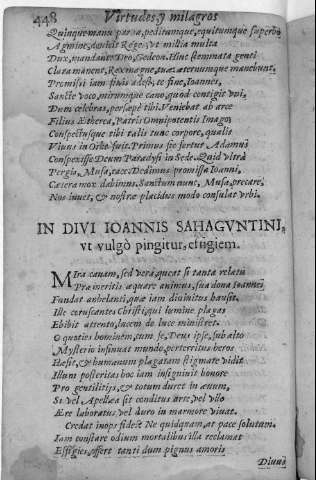 448 Virtudes, y milagros
Quinque manu parua, peditumque, equitumque superbo
Agmine, deuicit Reges, vt millia multa
Dux, mandante Deo, Gedeon. Hinc stemmata genti
Clara manent, Rex magne, tuæ æternumque manebunt.
Promissi iam finis adest, te fine, Ioannes,
Sancte voco, mirumque cano, quod contigit vni,
Dum celebras, persæpè tibi. Veniebat ab arce
Filius Ætherea, Patris Omnipotentis Imago,
Conspectusque tibi talis tunc corpore, qualis
Viuus in Orbe fuit. Primus sic fertur Adamus
Conspexisse Deum Paradysi in Sede. Quid vltrà
Pergis, Musa, tace. Dedimus promissa Ioanni,
Cætera mox dabimus. Sanctum nunc, Musa, precare,
Nos iuuet, & nostræ placidus modo consulat vrbi.
IN DIVI IOANNIS SAHAGVNTINI,
vt vulgò pingitur, effigiem.
Mira canam, sed vera, queat si tanta relatu
Præmeritis æquare animus, sua dona Ioannes
Fundat anhelanti, quæ iam diuinitus hausit.
Ille coruscantes Christi, qui lumine plagas
Ebibit attento, lucem de luce ministret.
O quoties hominem, cum se, Deus ipse, sub alto
Mysterio insinuat mundo, perterritus heros
Hæsit, & humanum plagatum stigmate vidit
Illum posteritas hoc iam insigniuit honore
Pro gentilitijs, & totum duret in æuum,
Si vel Apellæa sit conditus arte, vel illo
Ære laboratus, vel duro in marmore viuat.
Credat inops fidei? Ne quidquam, at pace solutam.
Iam constare odium mortalibus illa reclamat
Effigies, offert tanti dum pignus amoris
Diuus